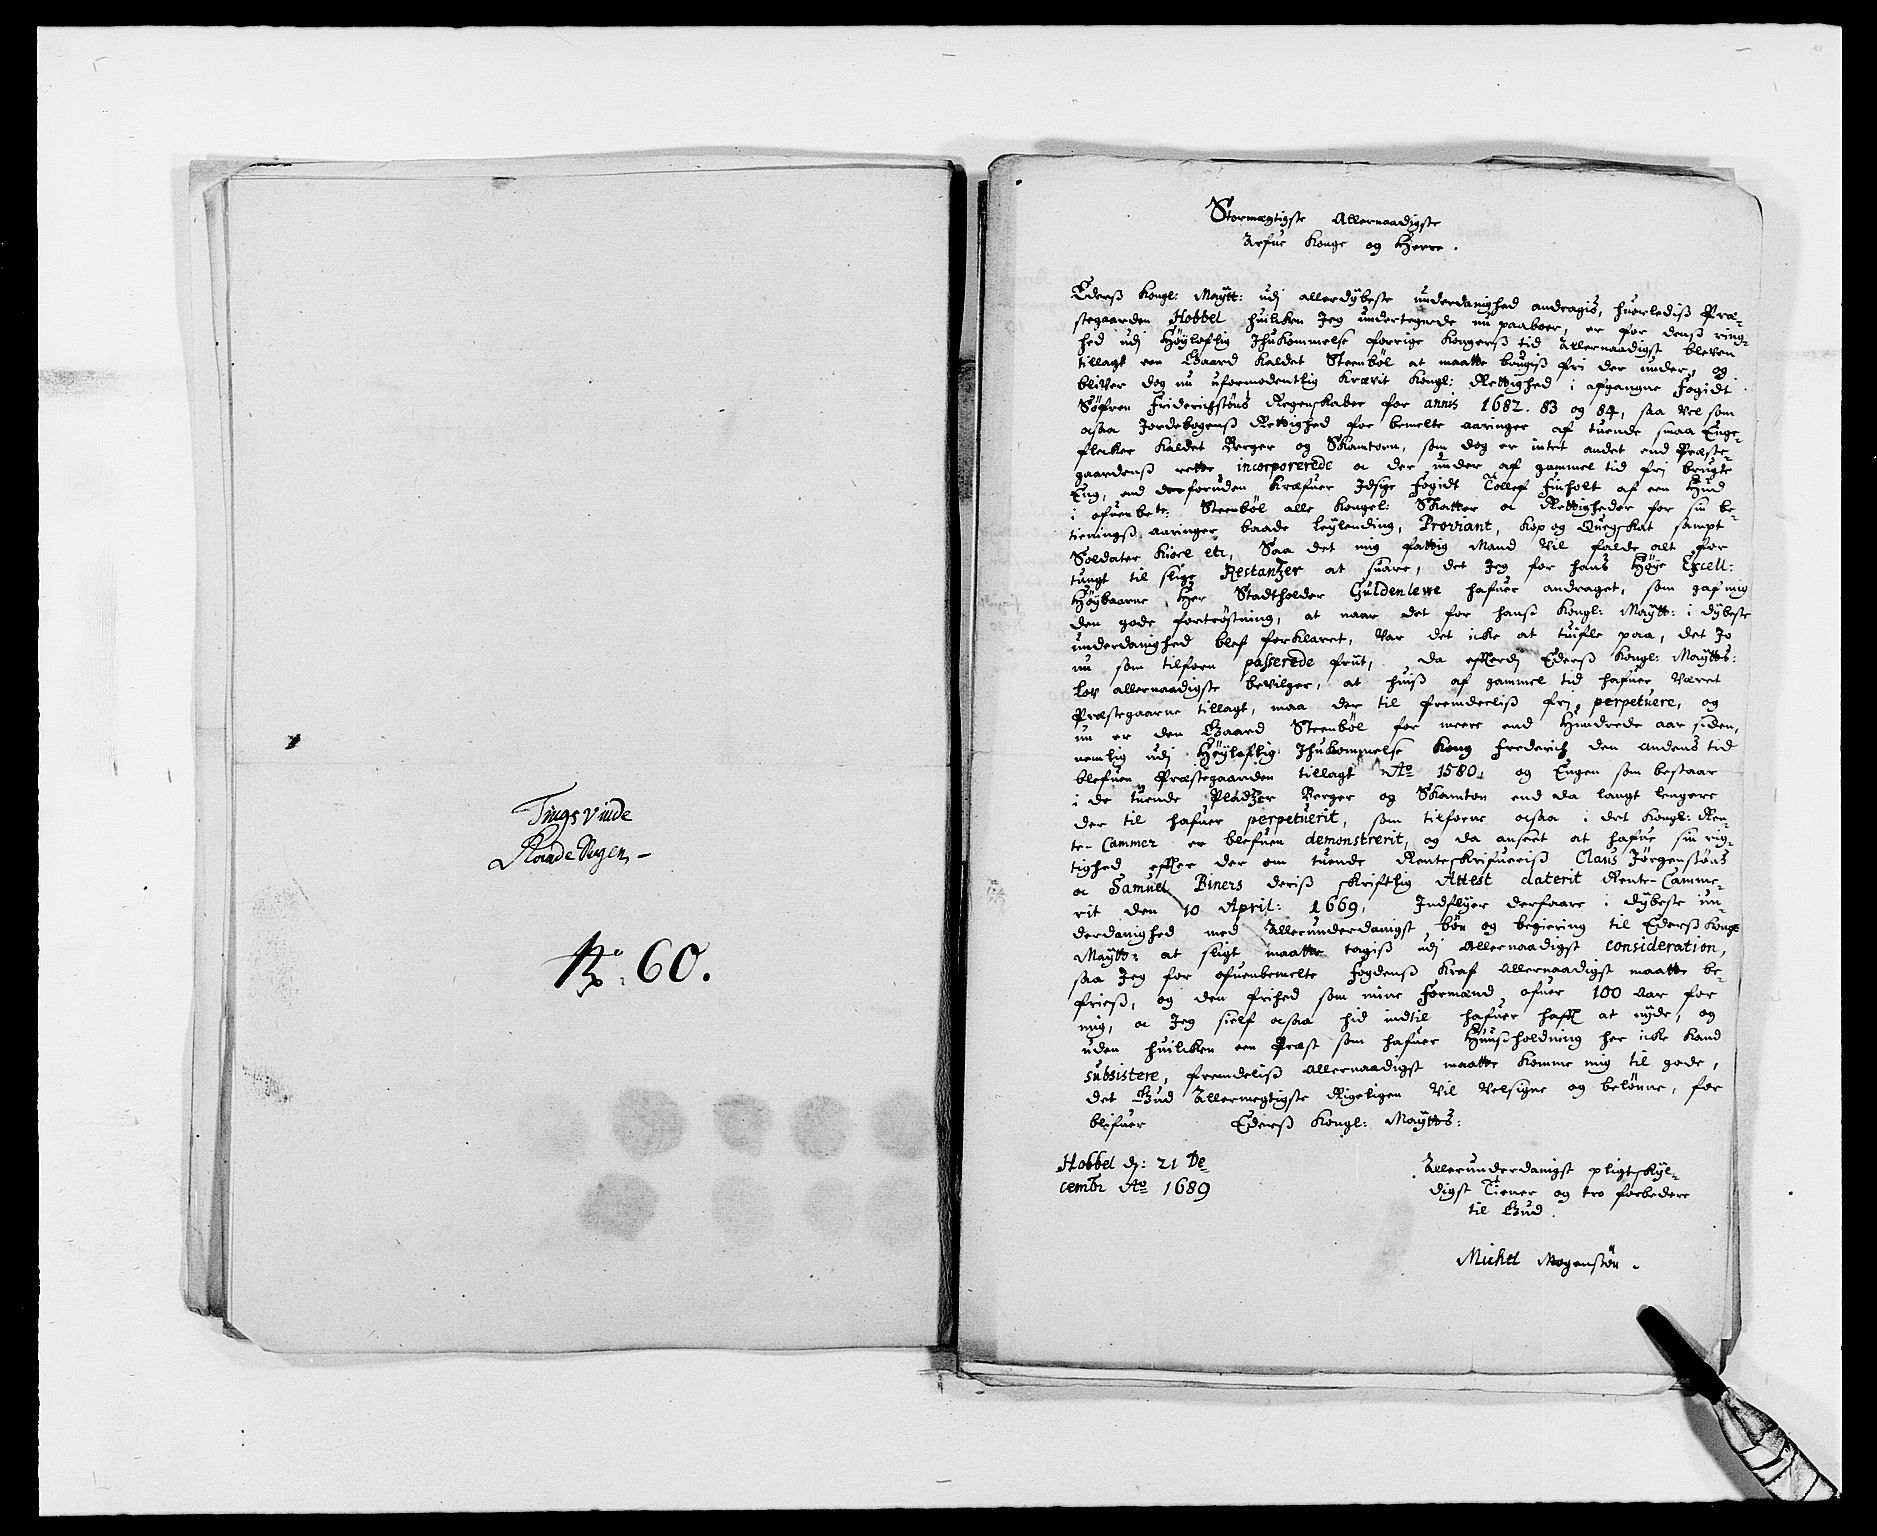 Tings Vinde
No. 60.
Stormegtigste Allernaadigste
Arfue Konge og Herre.
Ederß Kongl: Maÿtt: udj allerdÿbeste underdanighed andragis, huorlediß Præ-
stegaarden Hobbel huilcken Jeg undertegnede nu paaboer, er for denß ring-
hed udj Høÿloflig Jhukommelse forrige Kongerß tid Allernaadigst bleven
tillagt een Gaard kaldet Steenbøl at maatte brugiß fri der under, og
bliver dog nu uformodentlig krævit Kongl: Rettighed i afgangne Fogidt
Søfren Friderichsøns Regenskaber for annis 1682. 83 og 84, saa vel som
ocsaa Jordebogenß Rettighed for bemelte aaringer af tuende smaa Enge-
flecker kaldet Berger og Skamtorn, som dog er intet andet end Præste-
gaardenß rette incorporerede oc der under af gammel tid frj brugte
Eng, end derforuden kræfuer Jdsige Fogidt Tollef Finholt af een Hud
i ofuenbete: Steenbøl alle Kongel: Skatter oc Rettigheder for sin be-
tieningß aaringer, baade leÿlending, Proviant, Kop og Quegskat sampt
Soldater Kiole etc, Saa det mig fattig Mand vil falde alt for
tungt til slige Restantzer at suare, det Jeg for hans Høÿe Excell:
Høÿbaarne Her Stadtholder Guldenlewe hafuer andraget, som gaf mig
den gode fortrøstning, at naar det for hanß Kongl: Maÿtt: i dÿbeste
underdanighed blef forklaret, var det icke at tuifle paa, det Jo
nu som tilforn passerede frit, da efftterdj Ederß Kongl: Maÿttß:
Lov allernaadigste bevilger, at huiß af gammel tid hafuer været
Præstegaarne tillagt, maa der til fremdeeliß frj perpetuere, og
nu er den Gaard Steenbøl for meere end Hundrede aar siden,
nemlig udj Høÿloflig Jhukommelse Kong Frederich den Andens tid
blefuen Præstegaarden tillagt Ao 1580, og Engen som bestaar
i de tuende Pladzer Berger og Skamton end da langt lengere
der til hafuer perpetuerit, som tilforne ocsaa i det Kongl: Ren-
te-Cammer er blefuen demonstrerit, og da anseet at hafue sin rig-
tighed effter der om tuende Renteskrifueriß Claus Jørgensøns
oc Samuel Biners deriß skriftlig Attest daterit Rente-Camme-
rit den 10 April: 1669, Indflÿer derfaare i dÿbeste un-
derdanighed med Allerunderdanigst bøn og begiering til Ederß Kongl
Maÿtt: at sligt maatte tagiß udj Allernaadigst consideration,
saa Jeg for ofuenbemelte Fogdenß kraf allernaadigst maatte be-
frieß, og den frihed som mine Formænd ofuer 100 Aar for
mig, oc Jeg sielf ocsaa hid indtil hafuer hafft at nÿde, og
uden huilcken een Præst som hafuer Huußholdning her icke kand
subsistere, fremdeliß allernaadigst maatte komme mig til gode,
det Gud Allermegtigste Rigeligen vil velsigne og belønne, for
blifuer Ederß Kongl: Maÿttß:
Hobbel dj: 21 De-
cembr Ao 1689
Allerunderdanigst pligtskÿl-
digst Tiener og tro forbedere
til Gud.
Michel Mogensøn.